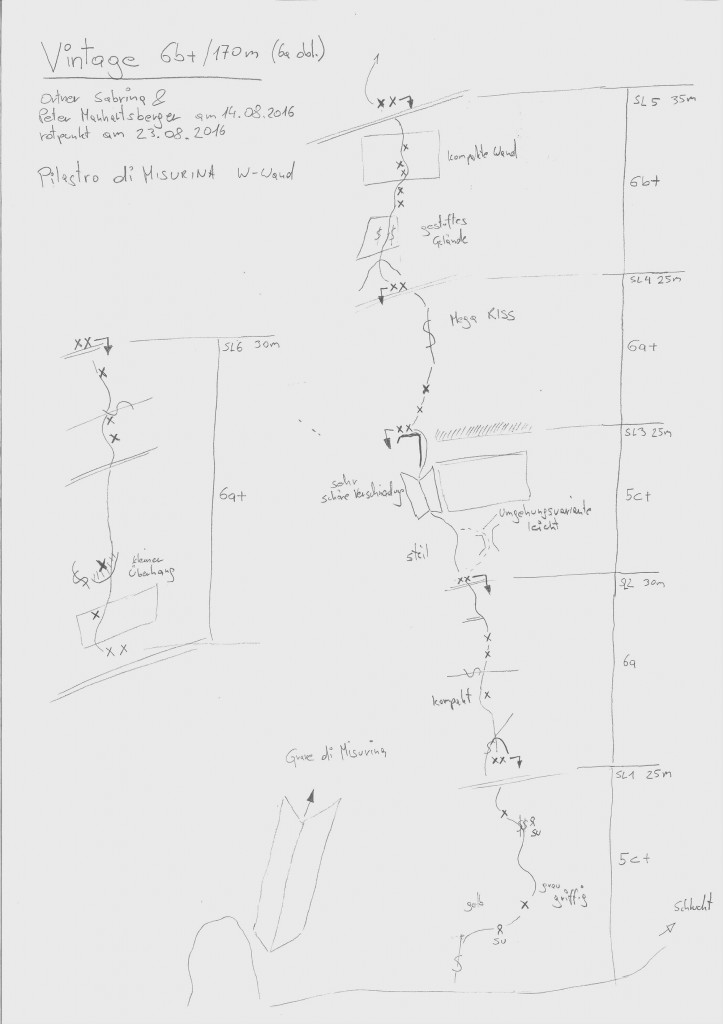 Vintage 6b+/170m (6a obl.)
Ortner Sabrina &
Peter Manhartsberger am 14.08.2016
rotpunkt am 23.08.2016
Pilastro di MISURINA W-Wand
SL5 35m
kompakte Wand
6b+
gestuftes
Gelände
SL4 25m
Mega KISS
6a+
SL6 30m
SL3 25m
sehr
schöne Verschneidung
6a+
5c+
Umgehungsvariante
leicht
steil
kleiner
Überhang
SL2 30m
6a
kompakt
Grave di Misurina
SL1 25m
SU
5c+
gelb
grau
griffig
SU
Schlucht